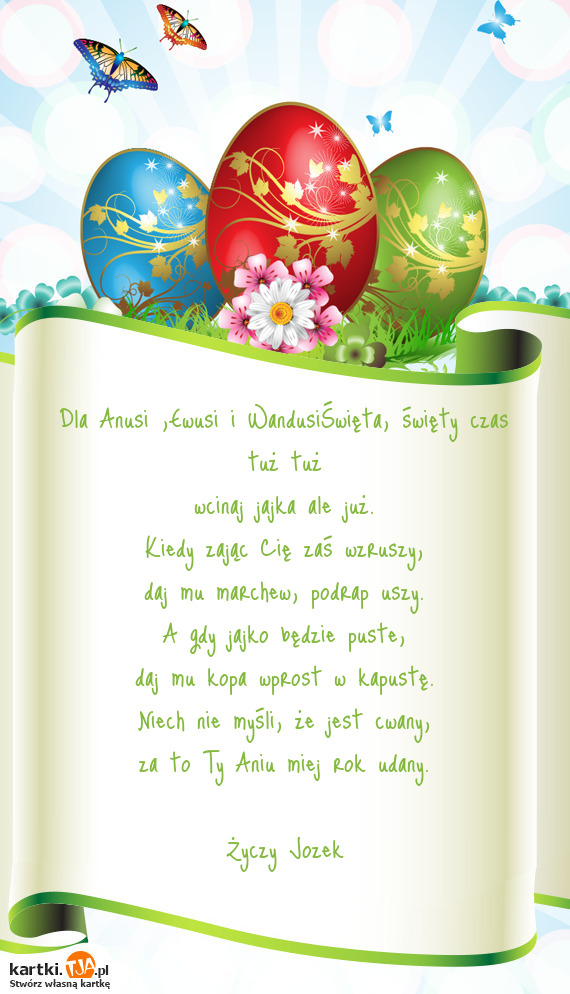 Dla Anusi ,Ewusi i WandusiŚwięta, święty czas
tuż tuż
wcinaj jajka ale już.
Kiedy zając Cię zaś wzruszy,
daj mu marchew, podrap uszy.
A gdy jajko będzie puste,
daj mu kopa wprost w kapustę.
Niech nie myśli, że jest cwany,
za to Ty Aniu miej rok udany.
Życzy Jozek
kartki.TJA.pl
Stwórz własną kartkę